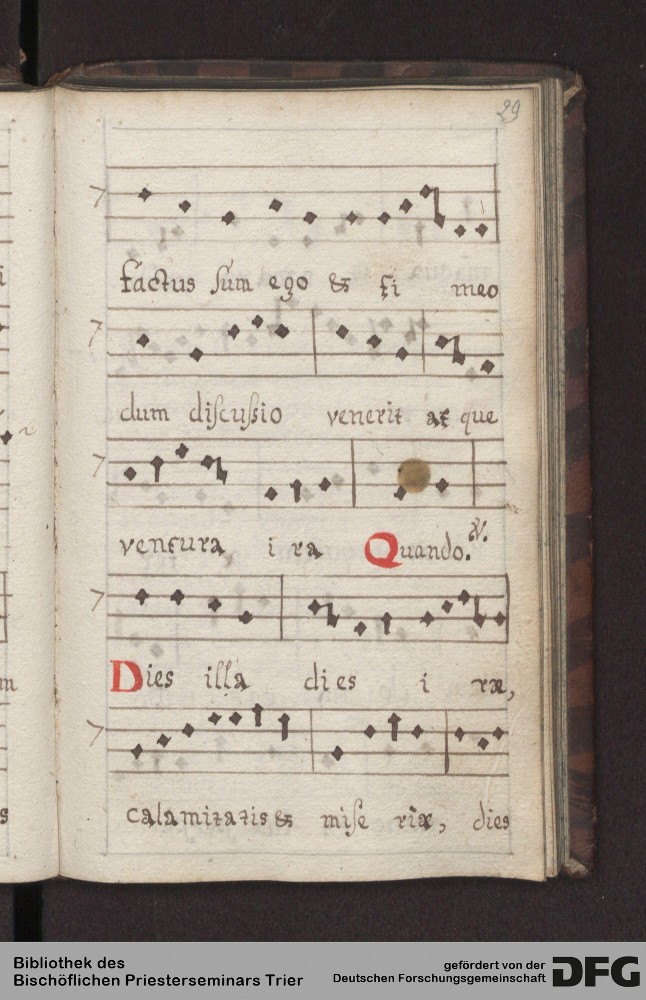 29
factus sum ego & ti meo
dum discussio venerit at que
ventura ira Quando. &.
Dies illa dies iræ,
calamitatis & miseriæ, dies
Bibliothek des
Bischöflichen Priesterseminars Trier
gefördert von der
Deutschen Forschungsgemeinschaft
DFG